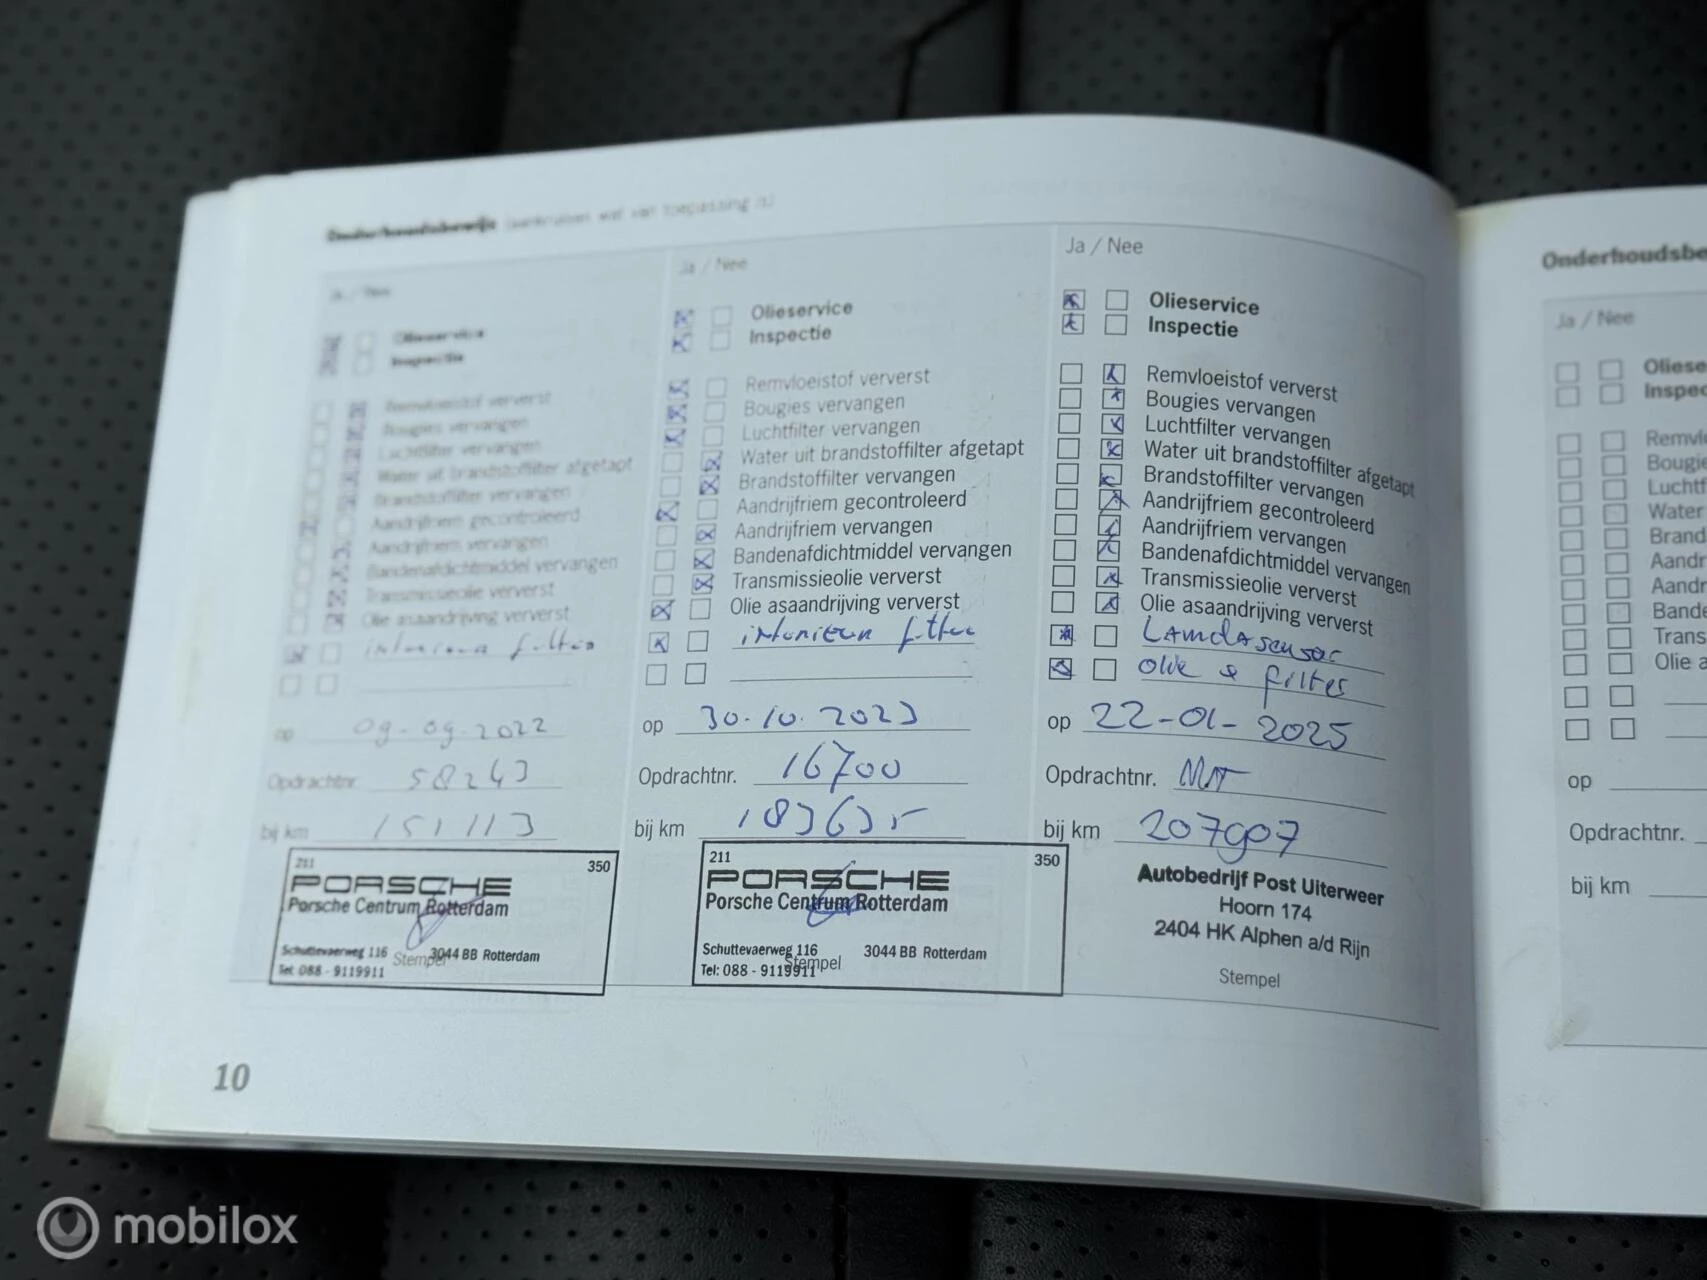 Onderhoudsbewijs (aankruisen wat van toepassing is)
Ja / Nee
Olieservice
Inspectie
Remvloeistof ververst
Bougies vervangen
Luchtfilter vervangen
Water uit brandstoffilter afgetapt
Brandstoffilter vervangen
Aandrijfriem gecontroleerd
Aandrijfriem vervangen
Bandenafdichtmiddel vervangen
Transmissieolie ververst
Olie asaandrijving ververst
interieur filter
op 09-09-2022
Opdrachtnr. 58243
bij km 151113
211 350
PORSCHE
Porsche Centrum Rotterdam
Schuttevaerweg 116 3044 BB Rotterdam
Tel: 088 - 9119911
Stempel
Ja / Nee
Olieservice
Inspectie
Remvloeistof ververst
Bougies vervangen
Luchtfilter vervangen
Water uit brandstoffilter afgetapt
Brandstoffilter vervangen
Aandrijfriem gecontroleerd
Aandrijfriem vervangen
Bandenafdichtmiddel vervangen
Transmissieolie ververst
Olie asaandrijving ververst
interieur filter
op 30-10-2023
Opdrachtnr. 16700
bij km 183635
211 350
PORSCHE
Porsche Centrum Rotterdam
Schuttevaerweg 116 3044 BB Rotterdam
Tel: 088 - 9119911
Stempel
Ja / Nee
Olieservice
Inspectie
Remvloeistof ververst
Bougies vervangen
Luchtfilter vervangen
Water uit brandstoffilter afgetapt
Brandstoffilter vervangen
Aandrijfriem gecontroleerd
Aandrijfriem vervangen
Bandenafdichtmiddel vervangen
Transmissieolie ververst
Olie asaandrijving ververst
Lamdasensor
Olie & filter
op 22-01-2025
Opdrachtnr.
bij km 207907
Autobedrijf Post Uiterweer
Hoorn 174
2404 HK Alphen a/d Rijn
Stempel
10
Onderhoudsbe
Ja / Nee
Oliese
Inspec
Remvl
Bougie
Luchtf
Water
Brand
Aandr
Aandr
Bande
Trans
Olie a
op
Opdrachtnr.
bij km
mobilox